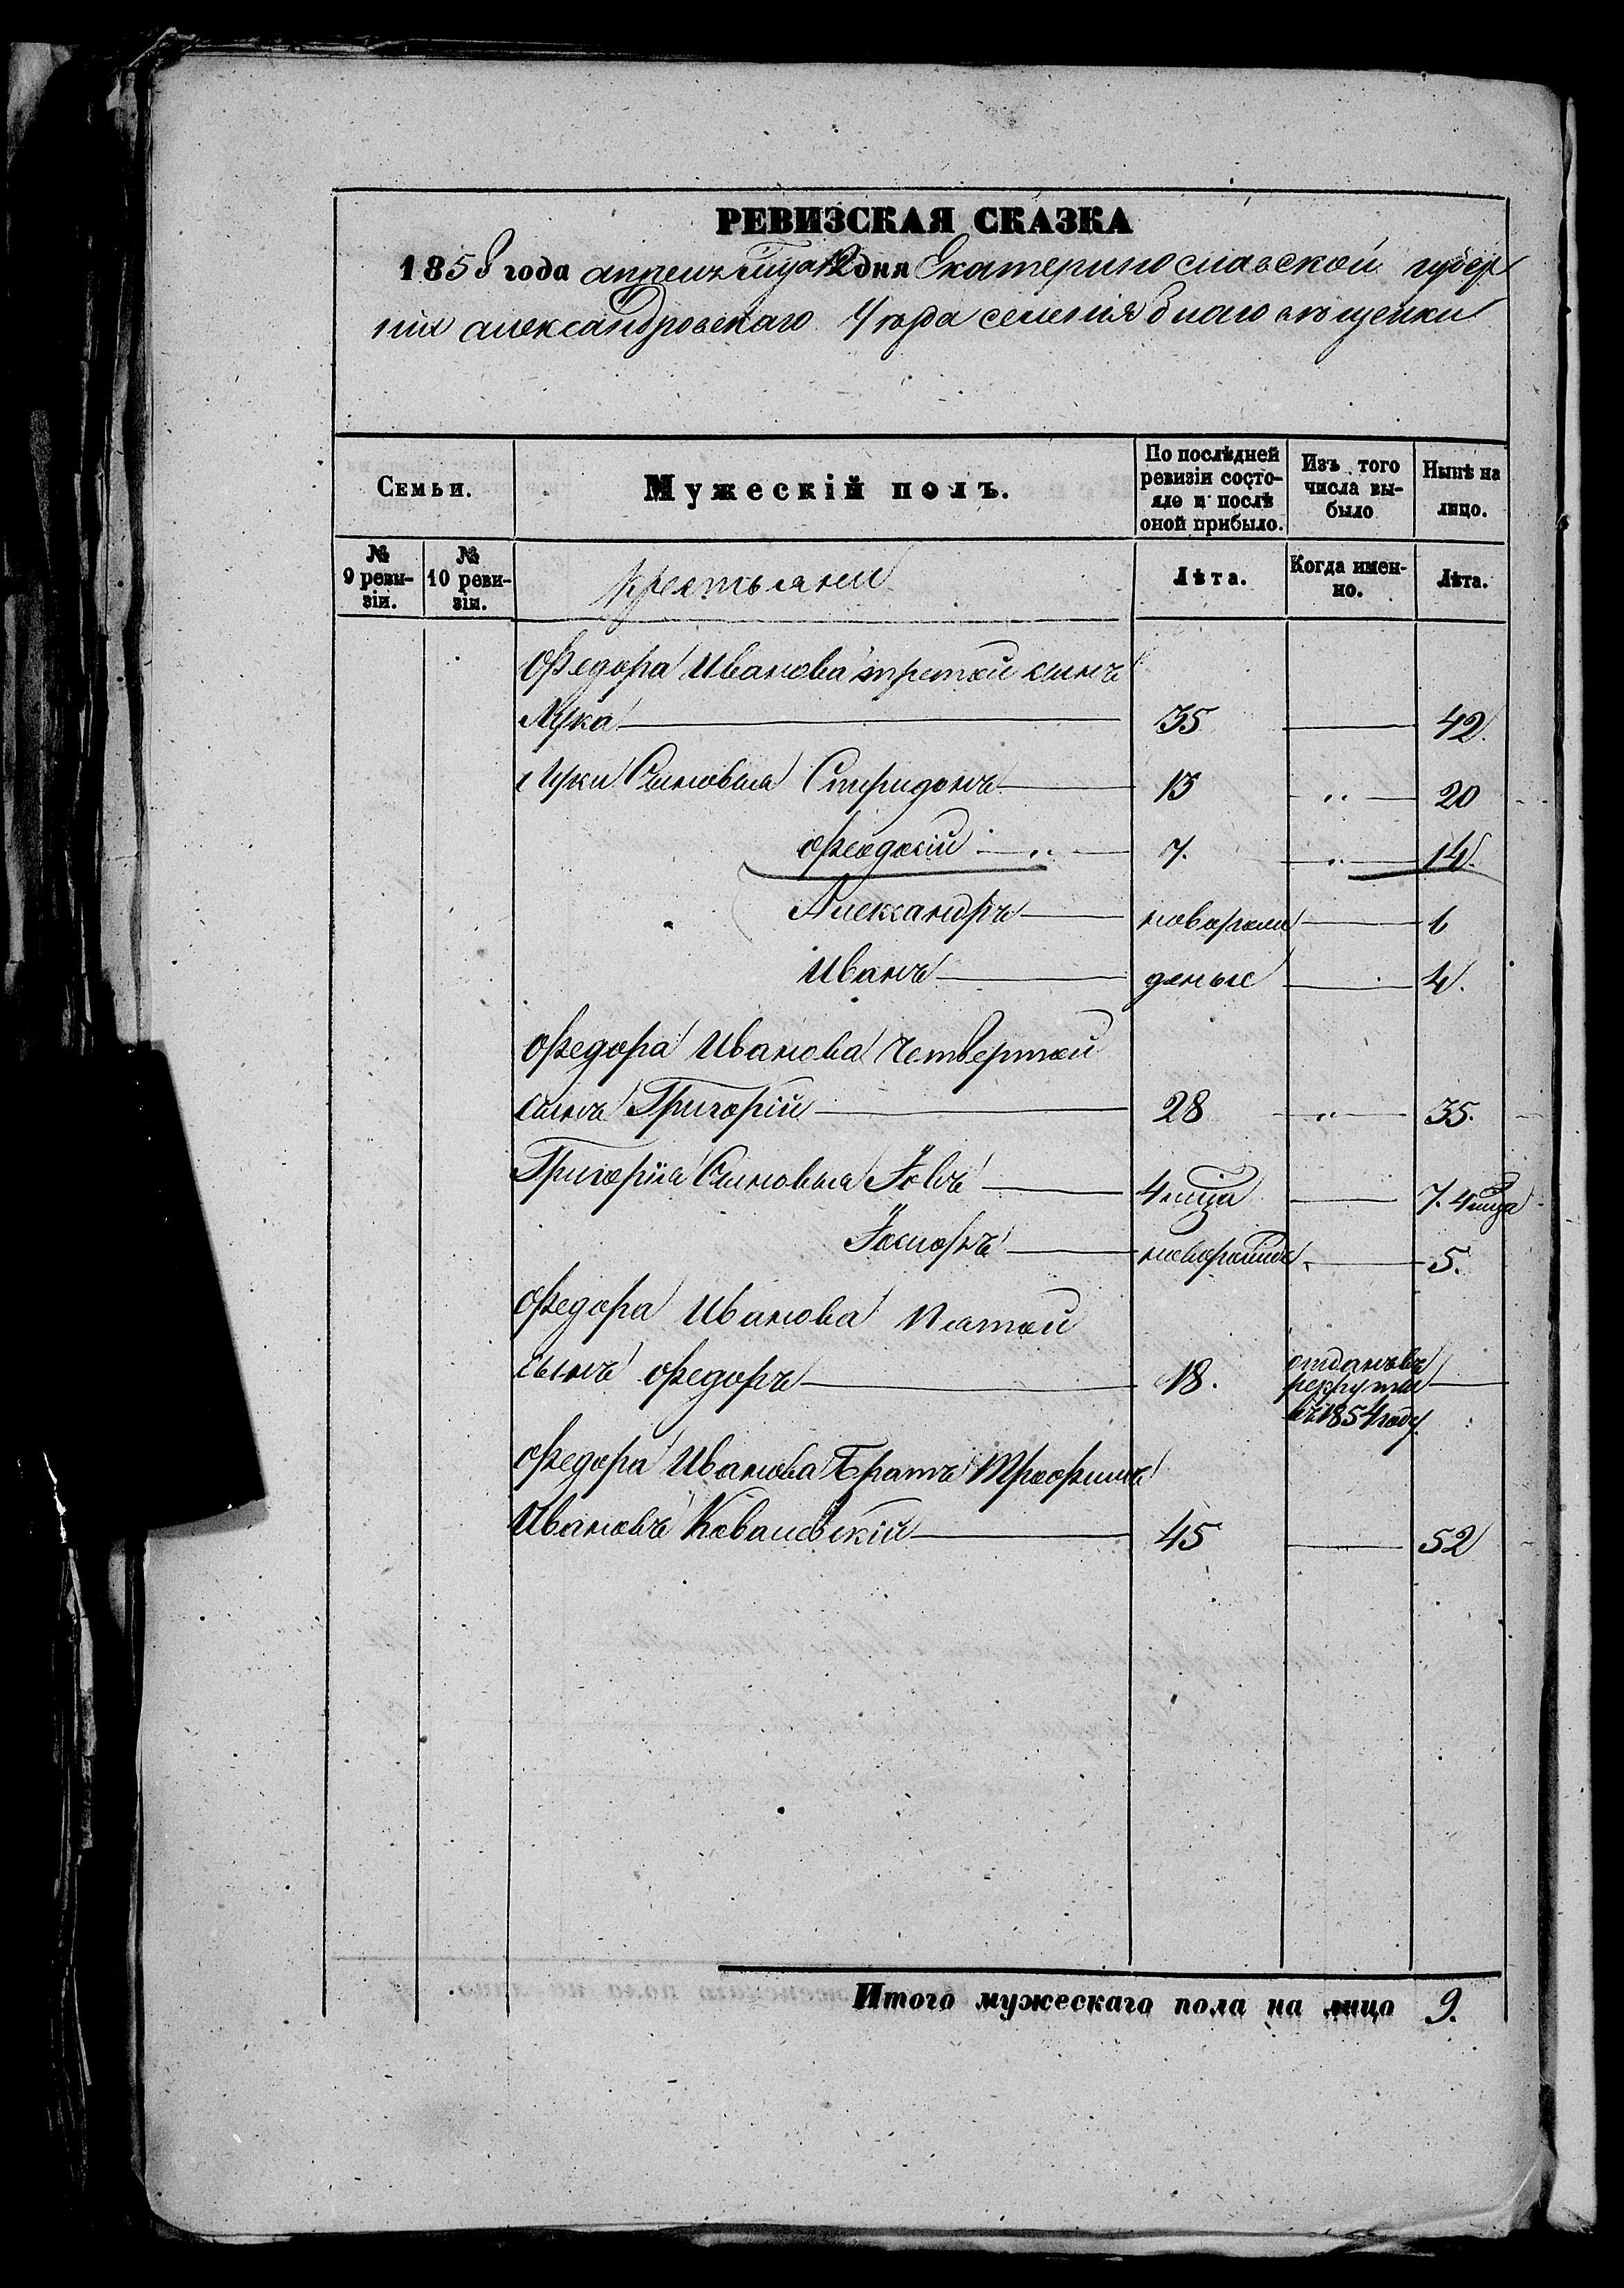 РЕВИЗСКАЯ СКАЗКА
1858 года апреля мца 12 дня Екатеринославской губер
нии александровскаго Уезда селения благовещенки
Семьи.
Мужескій полъ.
По послѣдней ревизіи состояло и послѣ оной прибыло.
Изъ того числа выбыло
Нынѣ на лицо.
№ 9 ревизіи.
№ 10 ревизіи.
крестьяни
Лѣта.
Когда именно.
Лѣта.
Федора Иванова третой сынъ
Лука 35 42.
Луки Сыновья Спиридонъ 13 " 20
Феодосій " 7. " 14.
Александръ новорожи 6
Иванъ деные 4.
Федора Иванова Четвертой
сынъ Григорій 28 " 35.
Григорія Сыновья Іовъ 4 мца 7. 4 мца
Іосифъ 5.
Федора Иванова Пятой
сынъ Федоръ 18. отданъ въ рекруты въ 1854 году.
Федора Иванова Братъ Трофимъ
Ивановъ Ковалевскій 45 52
Итого мужескаго пола на лицо 9.